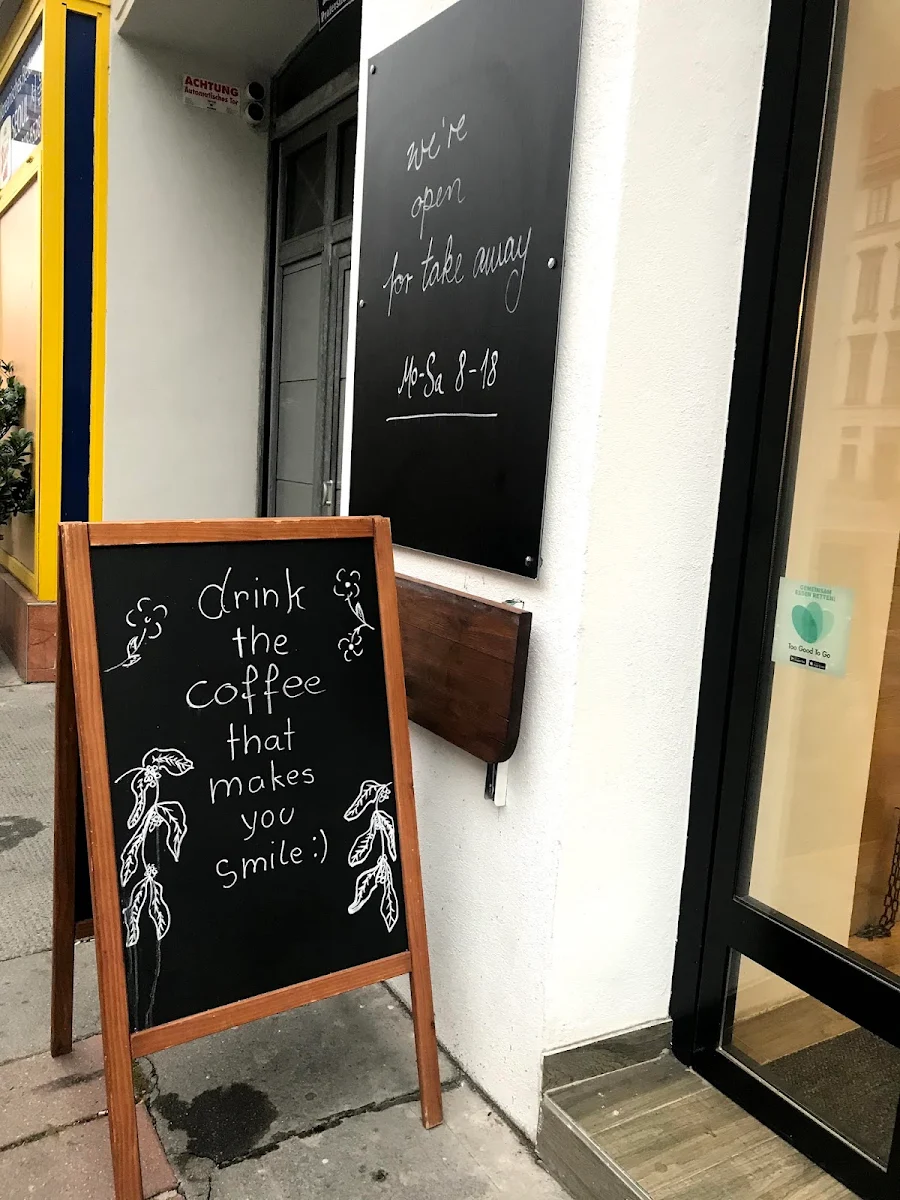 ACHTUNG
Automatisches Tor
we're
open
for take away
Mo-Sa 8-18
drink
the
coffee
that
makes
you
smile :)
GEMEINSAM
ESSEN RETTEN!
Too Good To Go